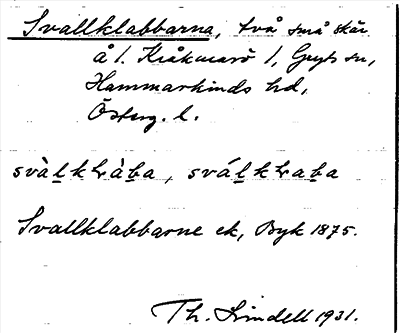 Svallklabbarna, två små skär
å l. Kråkmarö l, Gryts sn,
Hammarkinds hd,
Österg. l.
svàl̲kƚàb̲a, svál̲kƚab̲a
Svallklabbarne ek, Byk 1875.
Th. Lindell 1931.